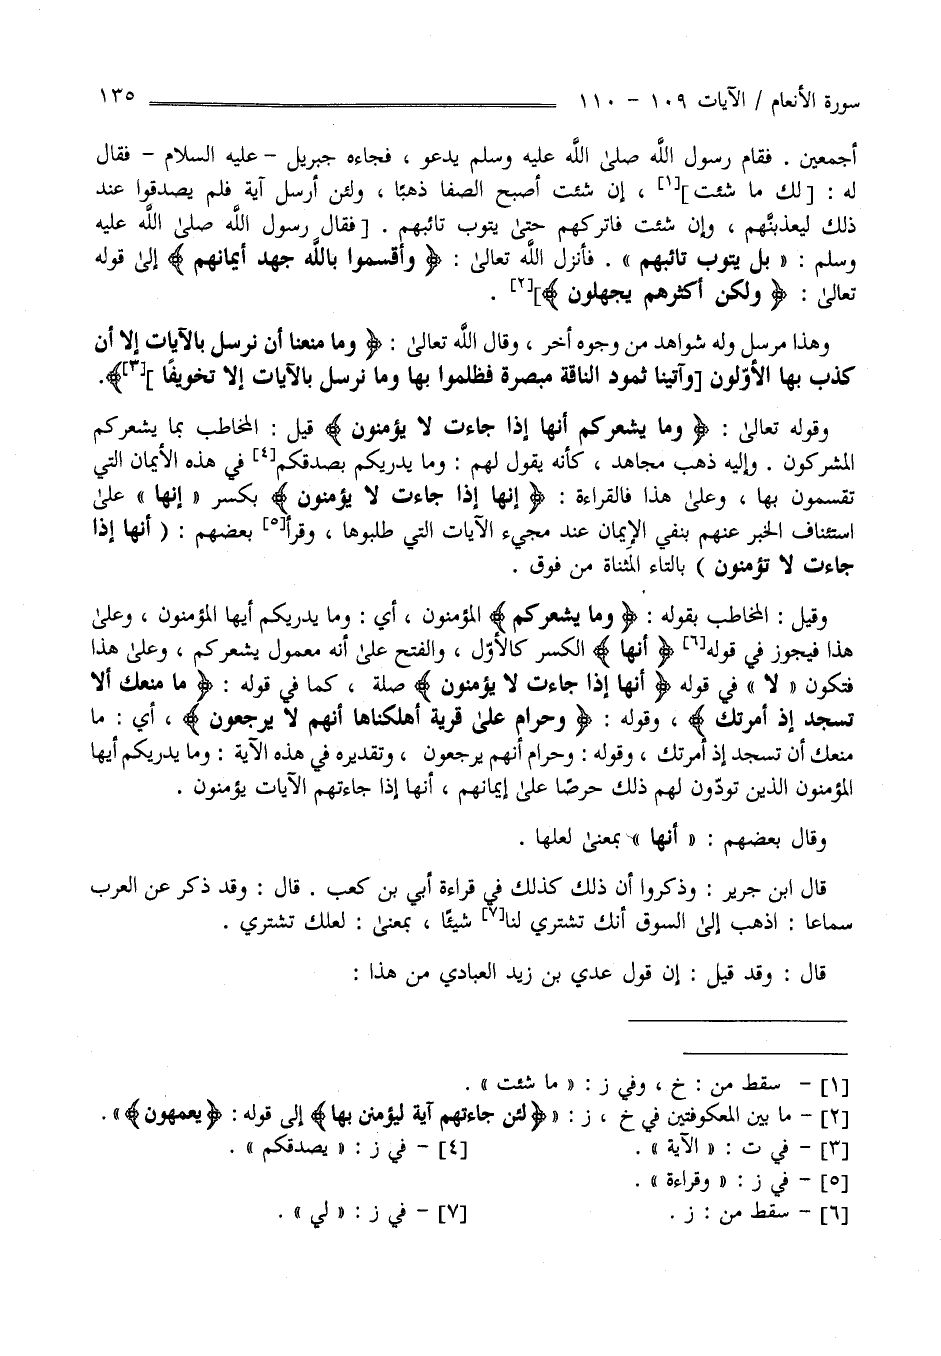 سورة الأنعام / الآيات ١٠٩ - ١١٠ ١٣٥
أجمعين . فقام رسول اللَّه صلىٰ اللَّه عليه وسلم يدعو ، فجاءه جبريل – عليه السلام – فقال
له : [ لك ما شئت ][١] ، إن شئت أصبح الصفا ذهبًا ، ولئن أرسل آية فلم يصدقوا عند
ذلك ليعذبنَّهم ، وإن شئت فاتركهم حتىٰ يتوب تائبهم . [ فقال رسول اللَّه صلىٰ اللَّه عليه
وسلم : « بل يتوب تائبهم » . فأنزل اللَّه تعالىٰ : ﴿ وأقسموا باللَّه جهد أيمانهم ﴾ إلىٰ قوله
تعالىٰ : ﴿ ولكن أكثرهم يجهلون ﴾][٢] .
وهذا مرسل وله شواهد من وجوه أخر ، وقال اللَّه تعالىٰ : ﴿ وما منعنا أن نرسل بالآيات إلا أن
كذب بها الأوّلون [وآتينا ثمود الناقة مبصرة فظلموا بها وما نرسل بالآيات إلا تخويفًا ][٣]﴾.
وقوله تعالىٰ : ﴿ وما يشعركم أنها إذا جاءت لا يؤمنون ﴾ قيل : المخاطب بما يشعركم
المشركون . وإليه ذهب مجاهد ، كأنه يقول لهم : وما يدريكم بصدقكم[٤] في هذه الأيمان التي
تقسمون بها ، وعلىٰ هذا فالقراءة : ﴿ إنها إذا جاءت لا يؤمنون ﴾ بكسر « إنها » علىٰ
استئناف الخبر عنهم بنفي الإيمان عند مجيء الآيات التي طلبوها ، وقرأ[٥] بعضهم : ( أنها إذا
جاءت لا تؤمنون ) بالتاء المثناة من فوق .
وقيل : المخاطب بقوله : ﴿ وما يشعركم ﴾ المؤمنون ، أي : وما يدريكم أيها المؤمنون ، وعلىٰ
هذا فيجوز في قوله[٦] ﴿ أنها ﴾ الكسر كالأوّل ، والفتح علىٰ أنه معمول يشعركم ، وعلىٰ هذا
فتكون « لا » في قوله ﴿ أنها إذا جاءت لا يؤمنون ﴾ صلة ، كما في قوله : ﴿ ما منعك ألا
تسجد إذ أمرتك ﴾ ، وقوله : ﴿ وحرام علىٰ قرية أهلكناها أنهم لا يرجعون ﴾ ، أي : ما
منعك أن تسجد إذ أمرتك ، وقوله : وحرام أنهم يرجعون ، وتقديره في هذه الآية : وما يدريكم أيها
المؤمنون الذين تودّون لهم ذلك حرصًا علىٰ إيمانهم ، أنها إذا جاءتهم الآيات يؤمنون .
وقال بعضهم : « أنها » بمعنىٰ لعلها .
قال ابن جرير : وذكروا أن ذلك كذلك في قراءة أبي بن كعب . قال : وقد ذكر عن العرب
سماعا : اذهب إلىٰ السوق أنك تشتري لنا[٧] شيئًا ، بمعنىٰ : لعلك تشتري .
قال : وقد قيل : إن قول عدي بن زيد العبادي من هذا :
[١] – سقط من : خ ، وفي ز : « ما شئت » .
[٢] – ما بين المعكوفتين في خ ، ز : «﴿ لئن جاءتهم آية ليؤمنن بها﴾ إلى قوله : ﴿يعمهون﴾» .
[٣] – في ت : « الآية » . [٤] – في ز : « يصدقكم » .
[٥] – في ز : « وقراءة » .
[٦] – سقط من : ز . [٧] – في ز : « لي » .